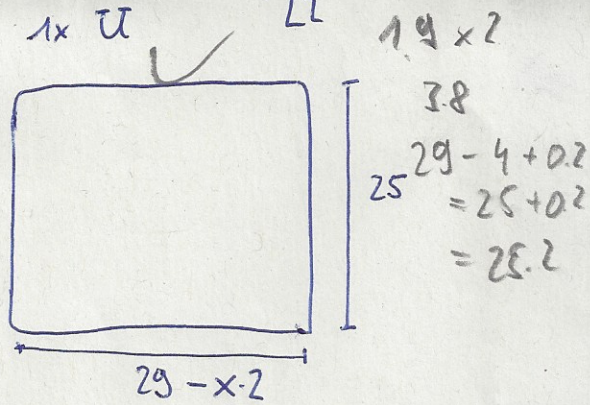 1x U
1.9 x 2
3.8
29 - 4 + 0.2
= 25 + 0.2
= 25.2
25
29 - x·2